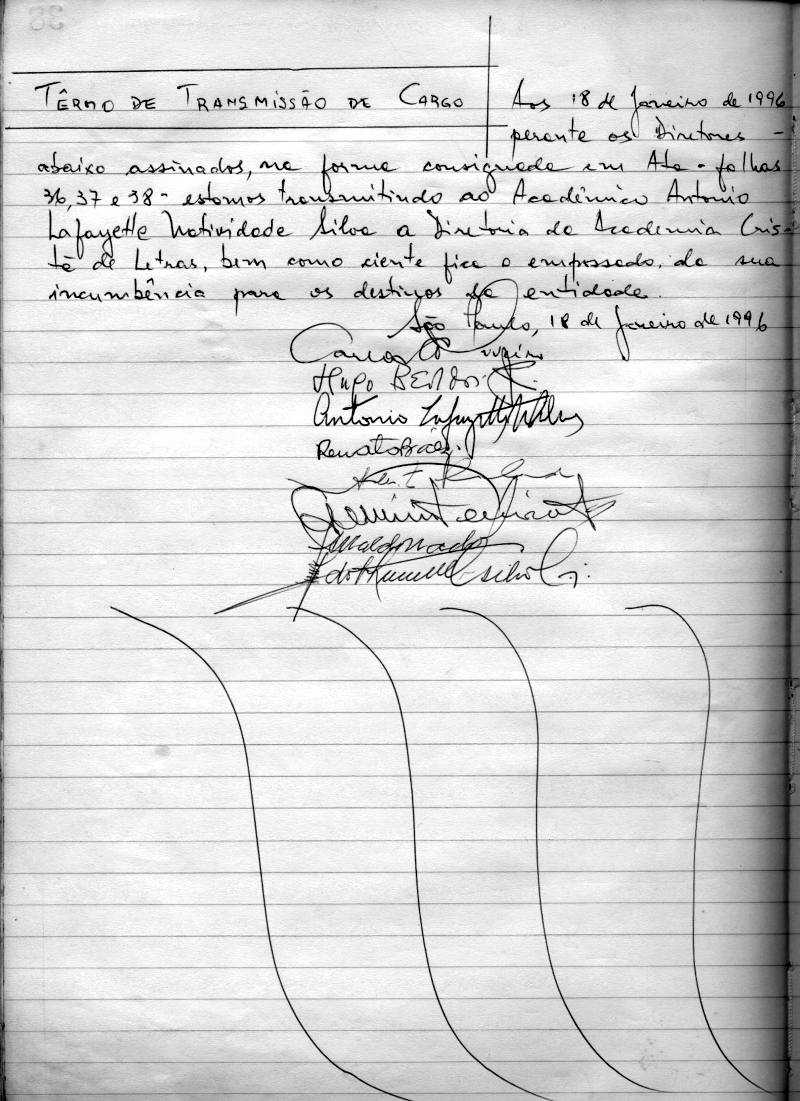 TÊRMO DE TRANSMISSÃO DE CARGO
Aos 18 de Janeiro de 1996
perante os Diretores -
abaixo assinados, na forma consignada em Ata - folhas
36, 37 e 38 - estamos transmitindo ao Acadêmico Antonio
Lafayette Natividade Silva a Diretoria da Academia Cris-
tã de Letras, bem como ciente fica o empossado, da sua
incumbência para os destinos da entidade.
São Paulo, 18 de Janeiro de 1996
Carlos
Hugo
Antonio Lafayette N Silva
Renato Báez
Maldonado